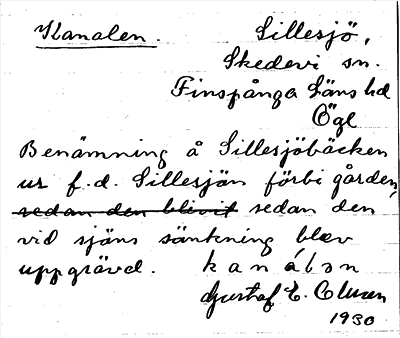 Kanalen. Sillesjö,
Skedevi sn.
Finspånga Läns hd
Ögl
Benämning å Sillesjöbäcken
ur f.d. Sillesjön förbi gården,
sedan den blivit sedan den
vid sjöns sänkning blev
uppgrävd. kanálən
Gustaf E. Clusen
1930